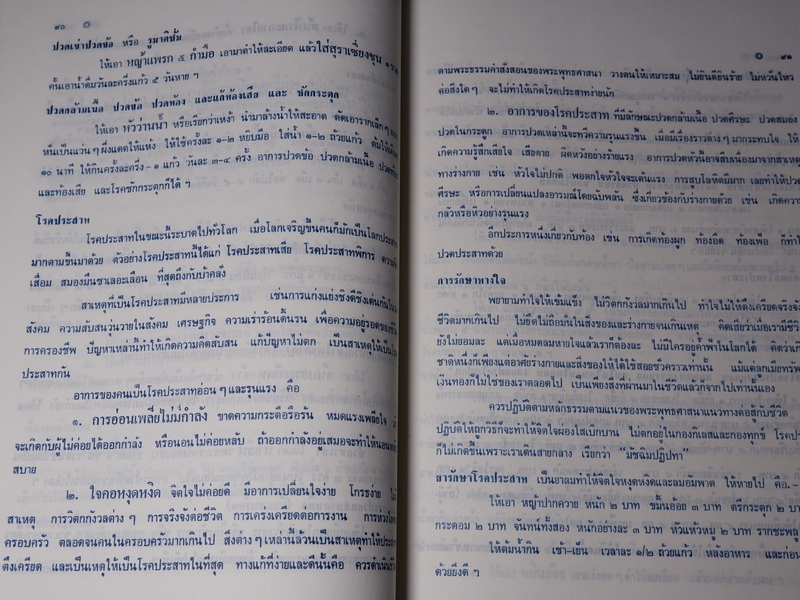 ๙๐
ปวดเข่าปวดข้อ หรือ รูมาติซั่ม
ให้เอา หญ้าแพรก ๕ กำมือ เอามาตำให้ละเอียด แล้วใส่สุราเซี่ยงชุน ๑
คั้นเอาน้ำดื่มวันละครั้งแก้ว ๕ วันหาย ๆ
ปวดกล้ามเนื้อ ปวดข้อ ปวดท้อง และแก้ท้องเสีย และ ชักกระตุก
ให้เอา หัวว่านน้ำ หรือเรียกว่าเหง้า นำมาล้างน้ำให้สะอาด ตัดเอารากเล็กๆ
หั่นเป็นแว่น ๆ ผึ่งแดดให้แห้ง ให้ใช้ครั้งละ ๑-๒ หยิบมือ ใส่น้ำ ๑-๒ ถ้วยแก้ว ต้มให้
๑๐ นาที ให้กินครั้งละครึ่ง-๑ แก้ว วันละ ๓-๔ ครั้ง อาการปวดข้อ ปวดกล้ามเนื้อ ปวด
และท้องเสีย และโรคชักกระตุกก็ได้ ๆ
โรคประสาท
โรคประสาทในขณะนี้ระบาดไปทั่วโลก เมื่อโลกเจริญขึ้นคนก็มักเป็นโลกประสาท
มากตามขึ้นมาด้วย ตัวอย่างโรคประสาทนี้ได้แก่ โรคประสาทเสีย โรคประสาทพิการ ความ
เสื่อม สมองมึนชาเลอะเลือน ที่สุดถึงกับบ้าคลั่ง
สาเหตุที่เป็นโรคประสาทมีหลายประการ เช่นการแก่งแย่งชิงดีชิงเด่นกันใน
สังคม ความสับสนวุ่นวายในสังคม เศรษฐกิจ ความเร่าร้อนดิ้นรน เพื่อความอยู่รอดของ
การครองชีพ ปัญหาเหล่านี้ทำให้เกิดความคิดสับสน แก้ปัญหาไม่ตก เป็นสาเหตุให้เป็น
ประสาทกัน
อาการของคนเป็นโรคประสาทอ่อน ๆ และรุนแรง คือ
๑. การอ่อนเพลียไม่มีกำลัง ขาดความกระตือรือร้น หมดแรงเพลียใจ
จะเกิดกับผู้ไม่ค่อยได้ออกกำลัง หรือนอนไม่ค่อยหลับ ถ้าออกกำลังอยู่เสมอจะทำให้นอน
สบาย
๒. ใจคอหงุดหงิด จิตใจไม่ค่อยดี มีอาการเปลี่ยนใจง่าย โกรธง่าย
สาเหตุ การวิตกกังวลต่าง ๆ การจริงจังต่อชีวิต การเคร่งเครียดต่อการงาน การ
ครอบครัว ตลอดจนคนในครอบครัวมากเกินไป สิ่งต่าง ๆ เหล่านี้ล้วนเป็นสาเหตุทำให้ประสาท
ตึงเครียด และเป็นเหตุให้เป็นโรคประสาทในที่สุด ทางแก้ที่ง่ายและดีนั้นคือ ควรดำเนิน
๙๑
ตามพระธรรมคำสั่งสอนของพระพุทธศาสนา วางตนให้เหมาะสม ไม่ยินดียินร้าย ไม่หวั่นไหว
ต่อสิ่งใด ๆ จะไม่ทำให้เกิดโรคประสาทง่ายนัก
๒. อาการของโรคประสาท ที่มีลักษณะปวดกล้ามเนื้อ ปวดศีรษะ ปวดสมอง
ปวดในกระดูก อาการปวดเหล่านี้จะทวีความรุนแรงขึ้น เมื่อมีเรื่องราวต่าง ๆ มากระทบใจ ให้
เกิดความรู้สึกเสียใจ เสียดาย ผิดหวังอย่างร้ายแรง อาการปวดหัวนี้อาจสืบเนื่องมาจากสาเหตุ
ทางร่างกาย เช่น หัวใจไม่ปกติ พอตกใจหัวใจจะเต้นแรง การสูบโลหิตมีมาก เลยทำให้ปวด
ศีรษะ หรือการเปลี่ยนแปลงอารมณ์โดยฉับพลัน ซึ่งเกี่ยวข้องกับร่างกายด้วย เช่น เกิดความ
กลัวหรือหิวอย่างรุนแรง
อีกประการหนึ่งเกี่ยวกับท้อง เช่น การเกิดท้องผูก ท้องอืด ท้องเฟ้อ ก็ทำ
ปวดประสาทด้วย
การรักษาทางใจ
พยายามทำใจให้เข้มแข็ง ไม่วิตกกังวลมากเกินไป ทำใจไม่ให้ตึงเครียดจริงจัง
ชีวิตมากเกินไป ไม่ยึดไม่ถือมั่นในสิ่งของและร่างกายจนเกินเหตุ คิดเสียว่าเมื่อเรามีชีวิต
ยังไม่ยอมละ แต่เมื่อหมดลมหายใจแล้วเราก็ต้องละ ไม่มีใครอยู่ค้ำฟ้าในโลกได้ คิดว่า
ชาติหนึ่งก็เพียงแต่อาศัยร่างกายและสิ่งของให้ได้ใช้สอยชั่วคราวเท่านั้น แม้แต่ลูกเมีย
เงินทองก็ไม่ใช่ของเราตลอดไป เป็นเพียงสิ่งที่ผ่านมาในชีวิตแล้วก็จากไปเท่านั้นเอง
ควรปฏิบัติตามหลักธรรมตามแนวของพระพุทธศาสนาแนวทางต่อสู้กับชีวิต
ปฏิบัติให้ถูกวิธีก็จะทำให้จิตใจผ่องใสเบิกบาน ไม่ตกอยู่ในกองกิเลสและกองทุกข์ โรค
ก็ไม่เกิดขึ้นเพราะเราเดินสายกลาง เรียกว่า "มัชฌิมปฏิปทา"
ยารักษาโรคประสาท เป็นยาลมทำให้จิตใจหงุดหงิดและลมอัมพาต ให้หายไป คือ.-
ให้เอา หญ้าปากควาย หนัก ๒ บาท ขมิ้นอ้อย ๓ บาท ตรีกระตุก ๒
กระดอม ๒ บาท จันทน์ทั้งสอง หนักอย่างละ ๓ บาท หัวแห้วหมู ๒ บาท รากชะพลู
ให้ต้มน้ำกิน เช้า-เย็น เวลาละ ๑/๒ ถ้วยแก้ว หลังอาหาร และก่อน
ด้วยยิ่งดี ๆ